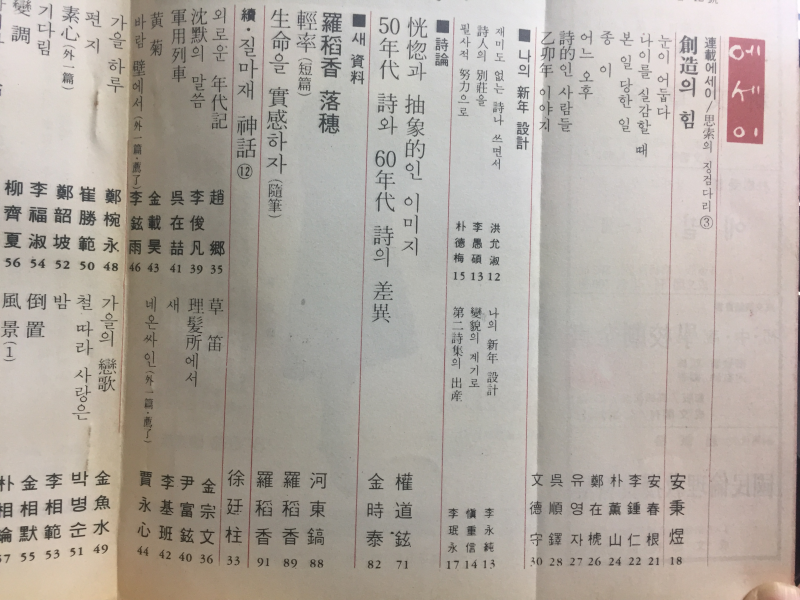 에세이
連載에세이/思索의 징검다리③
創造의 힘 安秉煜 18
눈이 어둡다 安春根 21
나이를 실감할 때 李鍾仁 22
본 일 당한 일 朴薰山 24
종이 26
어느 오후 유영자 27
詩的인 사람들 吳順鐸 28
乙卯年 이야기 文德守 30
■ 나의 新年 設計
재미도 없는 詩나 쓰면서 洪允淑 12
나의 新年 設計 李永純 13
詩人의 別莊을 李愚碩 13
變貌의 계기로 愼重信 14
필사적 努力으로 朴德梅 15
第二詩集의 出産 李珉永 17
■ 詩論
恍惚과 抽象的인 이미지 權道鉉 71
50年代 詩와 60年代 詩의 差異 金時泰 82
■ 새 資料
羅稻香 落穗 河東鎬 88
輕率(短篇) 羅稻香 89
生命을 實感하자(隨筆) 羅稻香 91
續·질마재 神話⑫ 徐廷柱 33
외로운 年代記 趙鄕 35
草笛 金宗文 36
沈默의 말씀 李俊凡 39
理髮所에서 尹富鉉 40
軍用列車 吳在喆 41
새 李基班 42
黃菊 金載昊 43
네온싸인(外一篇·薦了) 賈永心 44
바람 壁에서(外一篇·薦了) 李鉉雨 46
가을 하루 鄭梡永 48
가을의 戀歌 金魚水 49
편지 崔勝範 50
철 따라 사랑은 박병순 51
素心(外一篇) 鄭韶坡 52
밤 李相範 53
기다림 李福淑 54
倒置 金相默 55
變調 柳齊夏 56
風景(1) 57